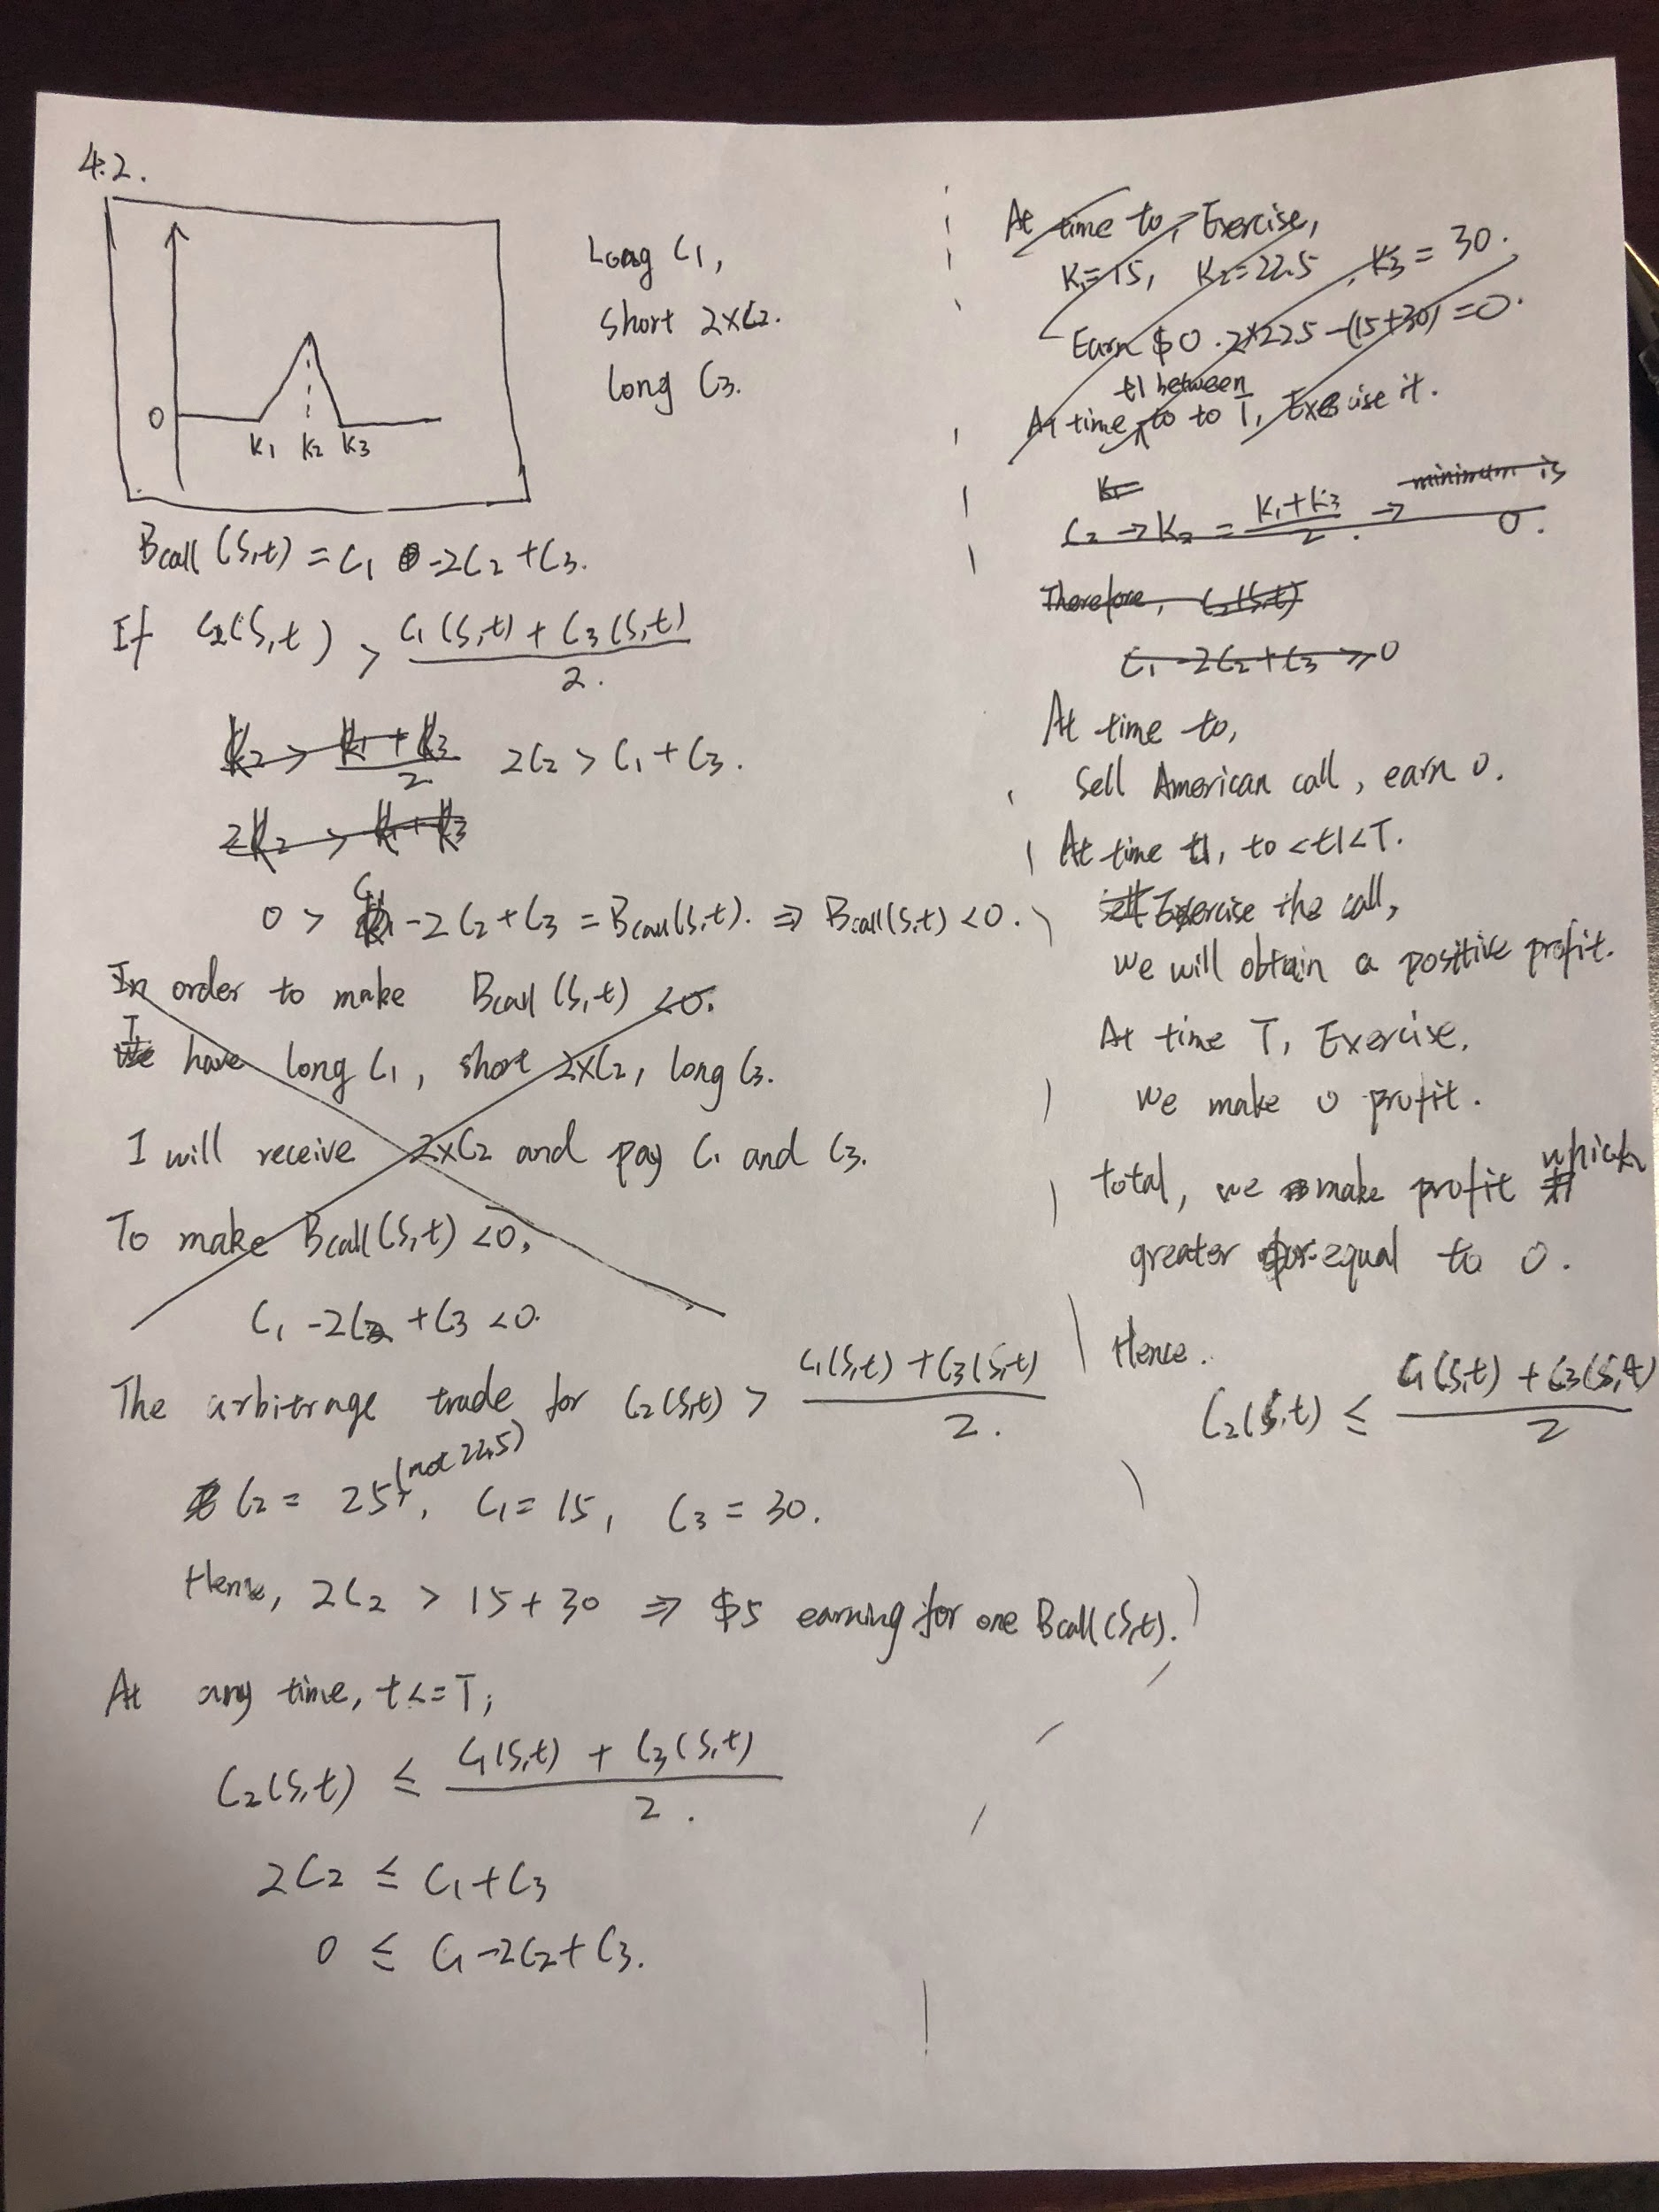 4.2.
0
K1 K2 K3
Long C1,
short 2×C2.
long C3.
Bcall (S,t) = C1 -2C2 + C3.
If C2(S,t) > C1(S,t) + C3(S,t) / 2.
K2 > K1 + K3 / 2 2C2 > C1 + C3.
2K2 > K1 + K3
0 > C1 -2C2 + C3 = Bcall(S,t). ⇒ Bcall(S,t) <0.
In order to make Bcall (S,t) <0.
I have long C1, short 2×C2, long C3.
I will receive 2×C2 and pay C1 and C3.
To make Bcall(S,t) <0,
C1 -2C2 + C3 <0.
The arbitrage trade for C2(S,t) > C1(S,t) + C3(S,t) / 2.
C2 = 25 (not 22.5), C1 = 15, C3 = 30.
Hence, 2C2 > 15 + 30 ⇒ $5 earning for one Bcall(S,t).
At any time, t<=T,
C2(S,t) ≤ C1(S,t) + C3(S,t) / 2.
2C2 ≤ C1 + C3
0 ≤ C1 -2C2 + C3.
At time to, Exercise,
K1=15, K2=22.5, K3 = 30.
Earn $0. 2*22.5 -(15+30) =0.
t1 between
At time to to T, Exercise it.
K1=
C2 → K2 = K1+K3 / 2. → minimum is
0.
Therefore, C2(S,t)
C1 -2C2 + C3 ≥ 0
At time to,
Sell American call, earn 0.
At time t1, to <t1<T.
Exercise the call,
we will obtain a positive profit.
At time T, Exercise.
we make 0 profit.
total, we make profit which
greater or equal to 0.
Hence.
C2(S,t) ≤ C1(S,t) + C3(S,t) / 2